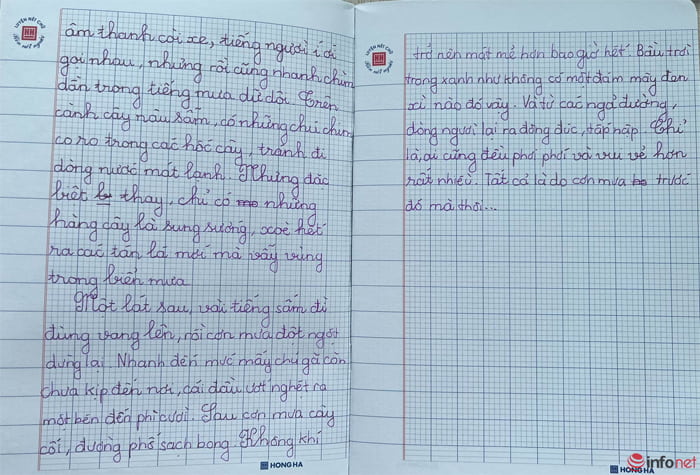 âm thanh còi xe, tiếng người í ới
gọi nhau, nhưng rồi cũng nhanh chìm
dần trong tiếng mưa dữ dội. Trên
cành cây nâu sẫm, có những chú chim
co ro trong các hốc cây, tránh đi
dòng nước mát lạnh. Nhưng đặc
biệt thay, chỉ có những
hàng cây là sung sướng, xoè hết
ra các tán lá mới mà vẫy vùng
trong biển mưa
Một lát sau, vài tiếng sấm đì
đùng vang lên, rồi cơn mưa đột ngột
dừng lại. Nhanh đến mức mấy chú gà còn
chưa kịp đến nơi, cái đầu ướt nghét ra
một bên đến phì cười. Sau cơn mưa cây
cối, đường phố sạch bong. Không khí
HONG HA
trở nên mát mẻ hơn bao giờ hết. Bầu trời
trong xanh như không có một đám mây đen
xì nào đó vậy. Và từ các ngả đường,
dòng người lại ra đông đúc, tấp nập. Chỉ
là, ai cũng đều phơi phới và vui vẻ hơn
rất nhiều. Tất cả là do cơn mưa trước
đó mà thôi...
HONG HA
infonet